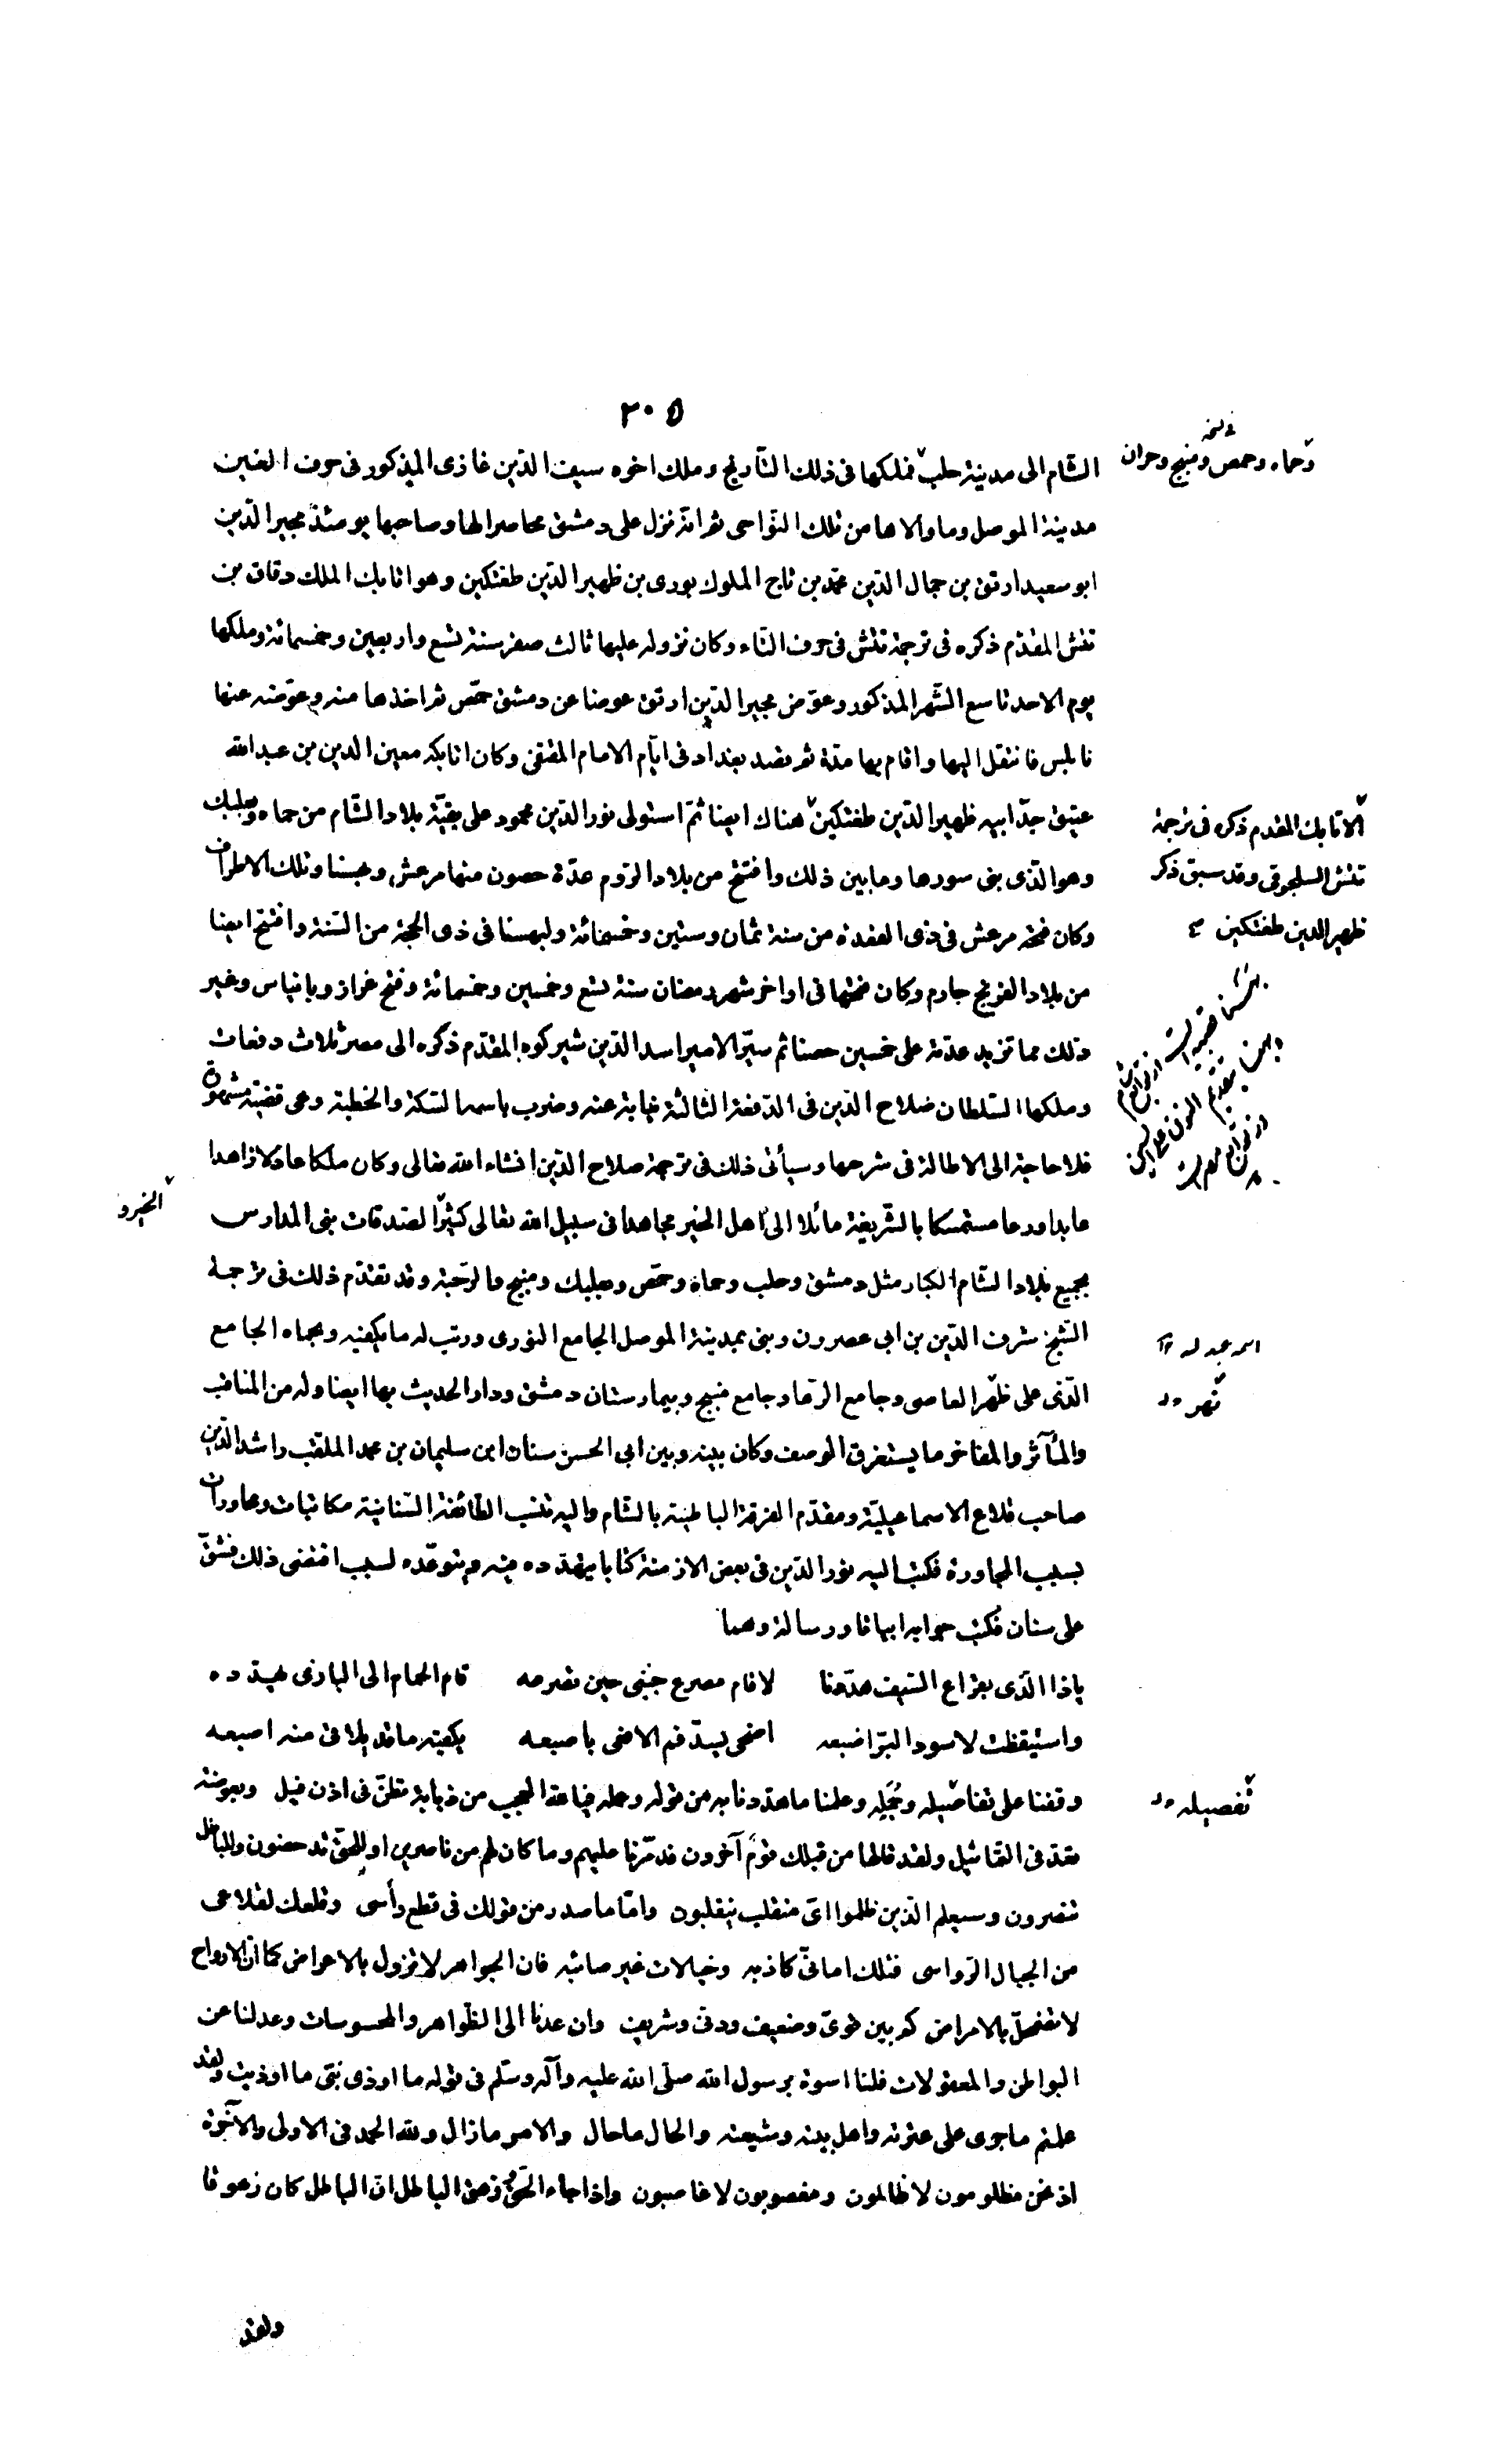 ٢٠٥
الشام الى مدينة حلب فملكها فى ذلك التاريخ وملك اخوه سيف الدين غازى المذكور فى حرف الغين
وحماه وحمص ومنبج وحران
مدينة الموصل وما والاها من تلك النواحى ثم انه نزل على دمشق محاصرا لها وصاحبها يومئذ مجير الدين
ابو سعيد ارتق بن جمال الدين محمد بن تاج الملوك بورى بن ظهير الدين طغتكين وهو اتابك الملك دقاق بن
تتش المقدم ذكره فى ترجمة تتش فى حرف التاء وكان نزوله عليها ثالث صفر سنة تسع واربعين وخمسمائة وملكها
يوم الاحد تاسع الشهر المذكور وعوض مجير الدين ارتق عوضا عن دمشق حمص ثم اخذها منه وعوضه عنها
نابلس فانتقل اليها واقام بها مدة ثم قصد بغداد فى ايام الامام المقتفى وكان اتابكه معين الدين بن عبد الله
عتيق جد ابيه ظهير الدين طغتكين هناك ايضا ثم استولى نور الدين محمود على بقية بلاد الشام من حماه وبعلبك
الاتابك المقدم ذكره فى ترجمة
تتش السلجوقى وقد سبق ذكر
ظهير الدين طغتكين
وهو الذى بنى سورها وما بين ذلك وافتتح من بلاد الروم عدة حصون منها مرعش وبهسنا وتلك الاطراف
وكان فتحه مرعش فى ذى القعدة من سنة ثمان وستين وخمسمائة ولبهسنا فى ذى الحجة من السنة وافتتح ايضا
من بلاد الفرنج حارم وكان فتحها فى اواخر شهر رمضان سنة تسع وخمسين وخمسمائة وفتح عزاز وبانياس وغير
ذلك مما تزيد عدته على خمسين حصنا ثم سير الامير اسد الدين شيركوه المقدم ذكره الى مصر ثلاث دفعات
وملكها السلطان صلاح الدين فى الدفعة الثالثة نيابة عنه وضرب باسمه السكة والخطبة وهى قضية مشهورة
فلا حاجة الى الاطالة فى شرحها وسيأتى ذلك فى ترجمة صلاح الدين انشاء الله تعالى وكان ملكا عادلا زاهدا
عابدا ورعا مستمسكا بالشريعة مائلا الى اهل الخير مجاهدا فى سبيل الله تعالى كثير الصدقات بنى المدارس
الخير و
بجميع بلاد الشام الكبار مثل دمشق وحلب وحماة وحمص وبعلبك ومنبج والرحبة وقد تقدم ذلك فى ترجمة
الشيخ شرف الدين بن ابى عصرون وبنى بمدينة الموصل الجامع النورى ورتب له ما يكفيه وبحماه الجامع
اسمه عبد الله
الذى على ظهر العاصى وجامع الرها وجامع منبج وبيمارستان دمشق ودار الحديث بها ايضا وله من المناقب
نهر
والمآثر والمفاخر ما يستغرق الوصف وكان بينه وبين ابى الحسن سنان ابن سليمان بن محمد الملقب راشد الدين
صاحب قلاع الاسماعيلية ومقدم الفرقة الباطنية بالشام واليه تنسب الطائفة السنانية مكاتبات ومحاورات
بسبب المجاورة فكتب اليه نور الدين فى بعض الازمنة كتابا يتهدده فيه ويتوعده لسبب اقتضى ذلك فشق
على سنان فكتب جوابه ابياتا ورسالة وهما
ياذا الذى بقراع السيف هددنا لا قام مصرع جنبى حين تصرعه قام الحمام الى البازى يهدده
واستيقظت لاسود البر اضبعه اضحى يسد فم الافعى باصبعه يكفيه ما قد يلاقى منه اصبعه
وقفنا على تفاصيله وجمله وعلمنا ما هددنا به من قوله وعمله فيا لله العجب من ذبابة تطن فى اذن فيل وبعوضة
تفصيله
تعد فى التماثيل ولقد قالها من قبلك قوم آخرون فدمرنا عليهم وما كان لهم من ناصرين او للحق تدحضون وللباطل
تنصرون وسيعلم الذين ظلموا اى منقلب ينقلبون واما ما صدر من قولك فى قطع رأسى وقلعك لقلاعى
من الجبال الرواسى فتلك امانى كاذبه وخيالات غير صائبه فان الجواهر لا تزول بالاعراض كما ان الارواح
لا تضمحل بالامراض كم بين قوى وضعيف ودنى وشريف وان عدنا الى الظواهر والمحسوسات وعدلنا عن
البواطن والمعقولات فلنا اسوة برسول الله صلى الله عليه وآله وسلم فى قوله ما اوذى نبى ما اوذيت ولقد
علمتم ما جرى على عترته واهل بيته وشيعته والحال ما حال والامر ما زال ولله الحمد فى الاولى والآخرة
اذ نحن مظلومون لا ظالمون ومغصوبون لا غاصبون واذا جاء الحق زهق الباطل ان الباطل كان زهوقا
ولقد